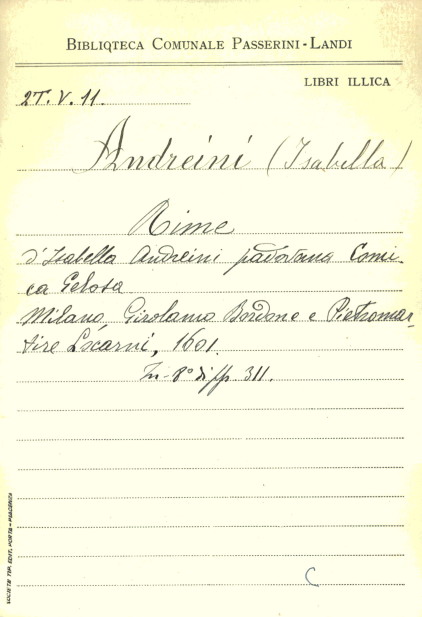 BIBLIOTECA COMUNALE PASSERINI-LANDI
LIBRI ILLICA
2T. V. 11.
Andreini (Isabella)
Rime
d'Isabella Andreini padovana Comi-
ca Gelosa
Milano, Girolamo Bordone e Pietromar-
tire Locarni, 1601.
In-8° di pp. 311.
C
SOCIETÀ TIP. EDIT. PORTA - PIACENZA